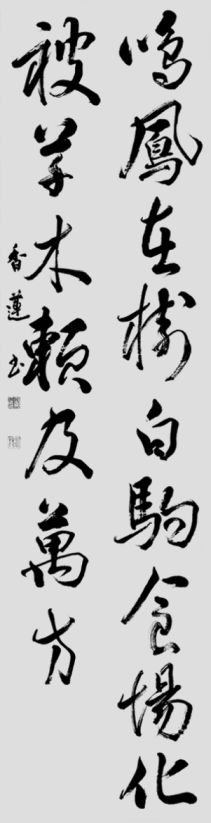 鳴鳳在樹白駒食場化
被草木賴及萬方
香蓮书